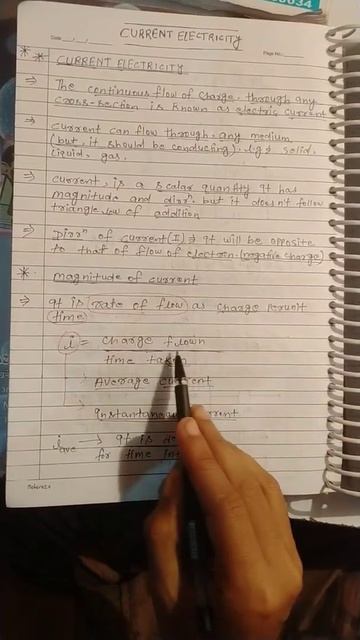 Date
Page No.
CURRENT ELECTRICITY
* * CURRENT ELECTRICITY
⇒ The continuous flow of charge through any
cross-section is known as electric current
⇒ current can flow through any medium
(but it should be conducting). e.g. solid,
liquid, gas.
⇒ current is a scalar quantity It has
magnitude and dirrⁿ but it doesn't follow
triangle law of addition
⇒ Dirrⁿ of current (I) ⇒ it will be opposite
to that of flow of electron (negative charge)
* magnitude of current
⇒ It is rate of flow as charge perunit
time
i = charge flown
time taken
Average current
instantaneous current
i ave → It is
for time